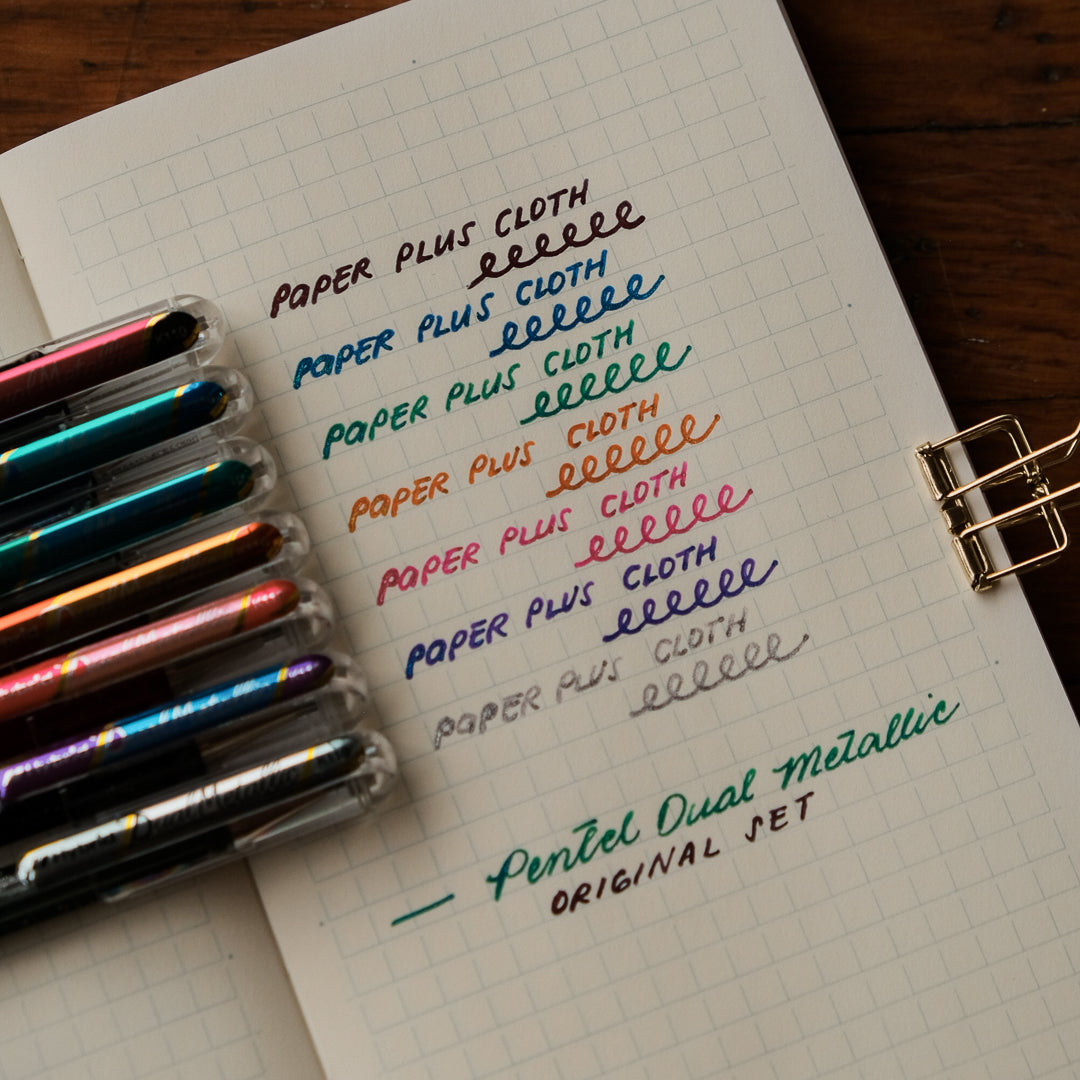 PAPER PLUS CLOTH
PAPER PLUS CLOTH
PAPER PLUS CLOTH
PAPER PLUS CLOTH
PAPER PLUS CLOTH
PAPER PLUS CLOTH
PAPER PLUS CLOTH
— Pentel Dual Metallic
ORIGINAL SET
Dual Metallic